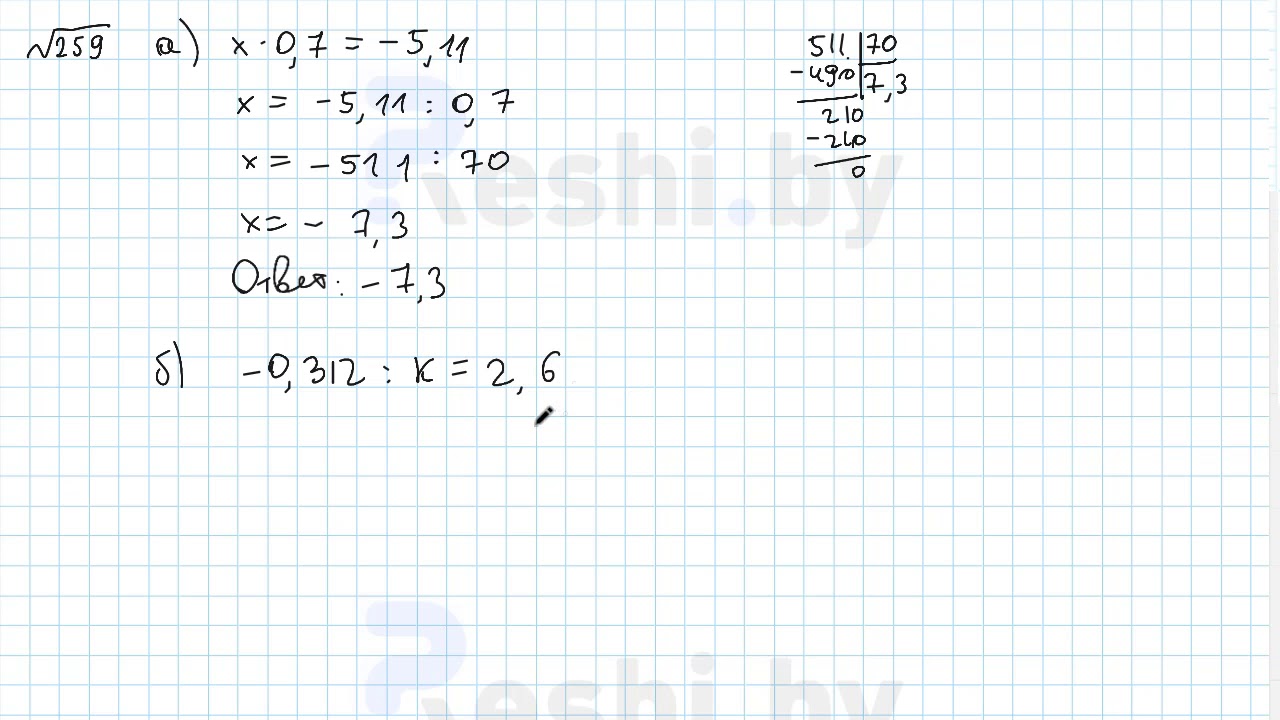 √259 а) x · 0,7 = -5,11
x = -5,11 : 0,7
x = -511 : 70
x = - 7,3
Ответ: -7,3
б) -0,312 : к = 2,6
511 70
-490 7,3
210
-210
0
Reshi.by
Reshi.by